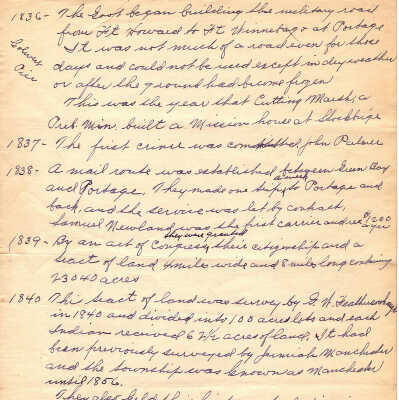 1836- The Govt began building the military road
from Ft Howard to Ft Winnebago at Portage
It was not much of a road even for those
days and could not be used except in dry weather
or after the ground had become frozen
This was the year that Cutting Marsh, a
Pres. Min. built a Mission house at Stockbridge
1837- The first crime was committed, John Palmer
1838- A mail route was established between Green Bay
and Portage. They made one trip a week to Portage and
back, and the service was let by contract,
Samuel Newland was the first carrier and rec $1200
a year
1839- By an act of Congress they were granted their citizenship and a
tract of land 4 miles wide and 8 miles long containing
23040 acres
1840 This tract of land was survey by F. W.
in 1840 and divided into 100 acre lots and each
Indian received 6 1/2 acres of land, It had
been previously surveyed by Jermiah Manchester
and the township was known as Manchester
until 1856.
They also held their